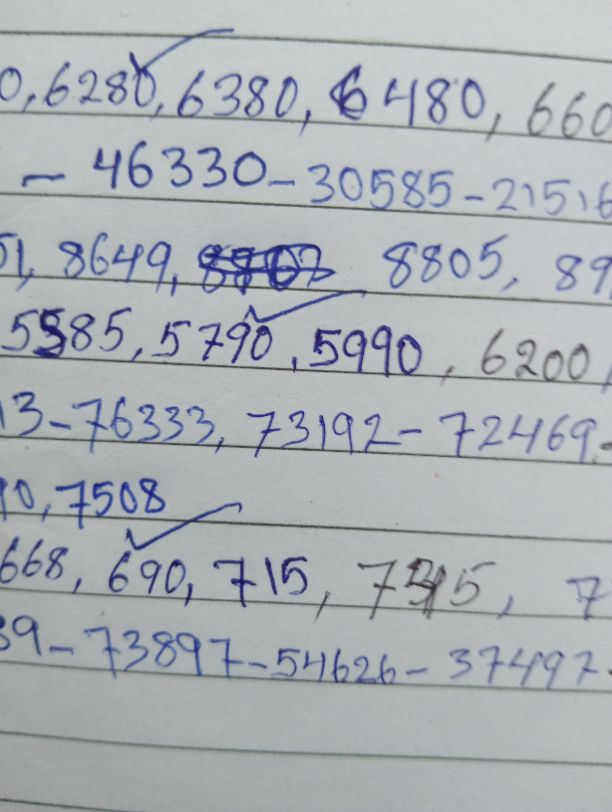 0, 6280, 6380, 6480, 660
- 46330 - 30585 - 21516
51, 8649, 8805, 89
5585, 5790, 5990, 6200,
13 - 76333, 73192 - 72469 -
90, 7508
668, 690, 715, 7 5, 7
39 - 73897 - 54626 - 37497 -